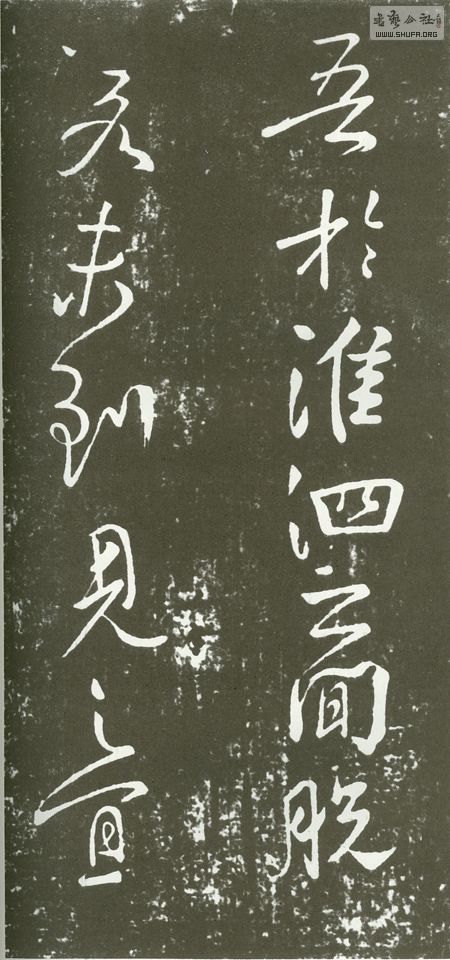 吾於淮泗之間脱
若未到見之宜
書藝公社
WWW.SHUFA.ORG